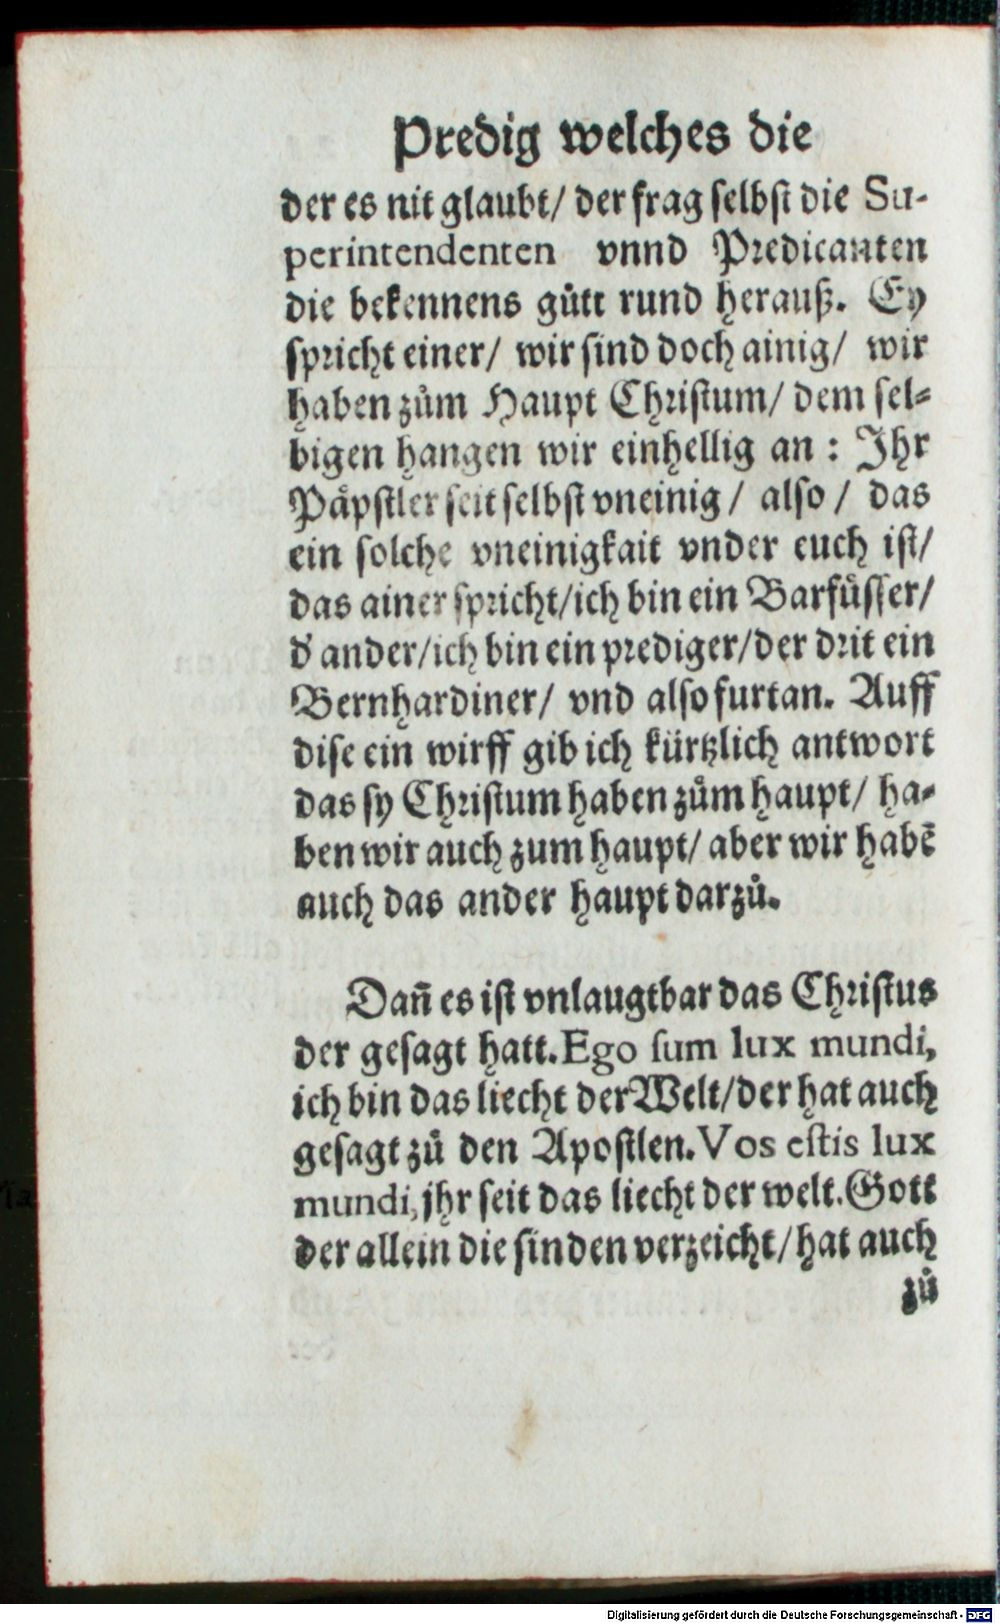 Predig welches die
der es nit glaubt/ der frag selbst die Su-
perintendenten vnnd Predicanten
die bekennens gůtt rund herauß. Ey
spricht einer/ wir sind doch ainig/ wir
haben zům Haupt Christum/ dem sel-
bigen hangen wir einhellig an : Jhr
Påpstler seit selbst vneinig / also / das
ein solche vneinigkait vnder euch ist/
das ainer spricht/ich bin ein Barfůsser/
d' ander/ich bin ein prediger/der drit ein
Bernhardiner/ vnd also furtan. Auff
dise ein wirff gib ich kürtzlich antwort
das sy Christum haben zům haupt/ ha-
ben wir auch zum haupt/ aber wir habē
auch das ander haupt darzů.
Dañ es ist vnlaugtbar das Christus
der gesagt hatt. Ego sum lux mundi,
ich bin das liecht der Welt/der hat auch
gesagt zů den Apostlen. Vos estis lux
mundi, jhr seit das liecht der welt. Gott
der allein die sinden verzeicht/ hat auch
zů
Digitalisierung gefördert durch die Deutsche Forschungsgemeinschaft - DFG